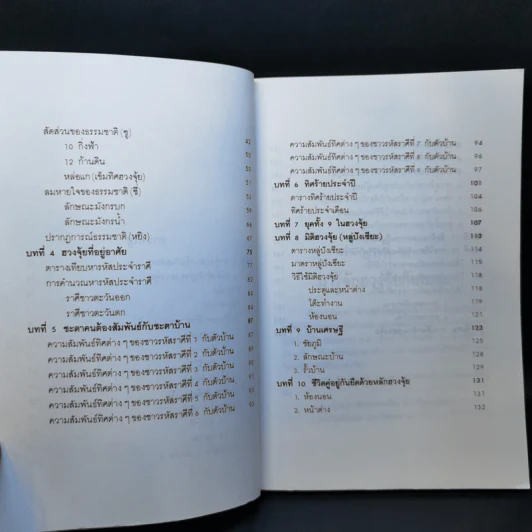 สัดส่วนของธรรมชาติ (ซู)
10 กิ่งฟ้า
12 ก้านดิน
หล่อแก (เข็มทิศฮวงจุ้ย)
ลมหายใจของธรรมชาติ (ชี่)
ลักษณะมังกรบก
ลักษณะมังกรน้ำ
ปรากฏการณ์ธรรมชาติ (หยิง)
บทที่ 4 ฮวงจุ้ยที่อยู่อาศัย
ตารางเทียบหารหัสประจำราศี
การคำนวณหารหัสประจำราศี
ราศีชาวตะวันออก
ราศีชาวตะวันตก
บทที่ 5 ชะตาคนต้องสัมพันธ์กับชะตาบ้าน 87
ความสัมพันธ์ทิศต่าง ๆ ของชาวรหัสราศีที่ 1 กับตัวบ้าน
ความสัมพันธ์ทิศต่าง ๆ ของชาวรหัสราศีที่ 2 กับตัวบ้าน
ความสัมพันธ์ทิศต่าง ๆ ของชาวรหัสราศีที่ 3 กับตัวบ้าน
ความสัมพันธ์ทิศต่าง ๆ ของชาวรหัสราศีที่ 4 กับตัวบ้าน
ความสัมพันธ์ทิศต่าง ๆ ของชาวรหัสราศีที่ 5 กับตัวบ้าน
ความสัมพันธ์ทิศต่าง ๆ ของชาวรหัสราศีที่ 6 กับตัวบ้าน
ความสัมพันธ์ทิศต่าง ๆ ของชาวรหัสราศีที่ 7 กับตัวบ้าน 94
ความสัมพันธ์ทิศต่าง ๆ ของชาวรหัสราศีที่ 8 กับตัวบ้าน 96
ความสัมพันธ์ทิศต่าง ๆ ของชาวรหัสราศีที่ 9 กับตัวบ้าน 97
บทที่ 6 ทิศร้ายประจำปี 103
ตารางทิศร้ายประจำปี 104
ทิศร้ายประจำเดือน 106
บทที่ 7 ยุคทั้ง 9 ในฮวงจุ้ย 107
บทที่ 8 มิติฮวงจุ้ย (หลู่ปังเซียะ) 113
ตารางหลู่ปังเซียะ
มาตราหลู่ปังเซียะ
วิธีใช้มิติฮวงจุ้ย
ประตูและหน้าต่าง
โต๊ะทำงาน
ห้องนอน
บทที่ 9 บ้านเศรษฐี 123
1. ชัยภูมิ 125
2. ลักษณะบ้าน 128
3. รั้วบ้าน 129
บทที่ 10 ชีวิตคู่อยู่กันยืดด้วยหลักฮวงจุ้ย 131
1. ห้องนอน 131
2. หน้าต่าง 132